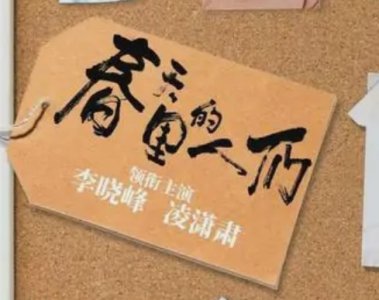 春天里的人们
领衔主演
李晓峰 凌潇肃